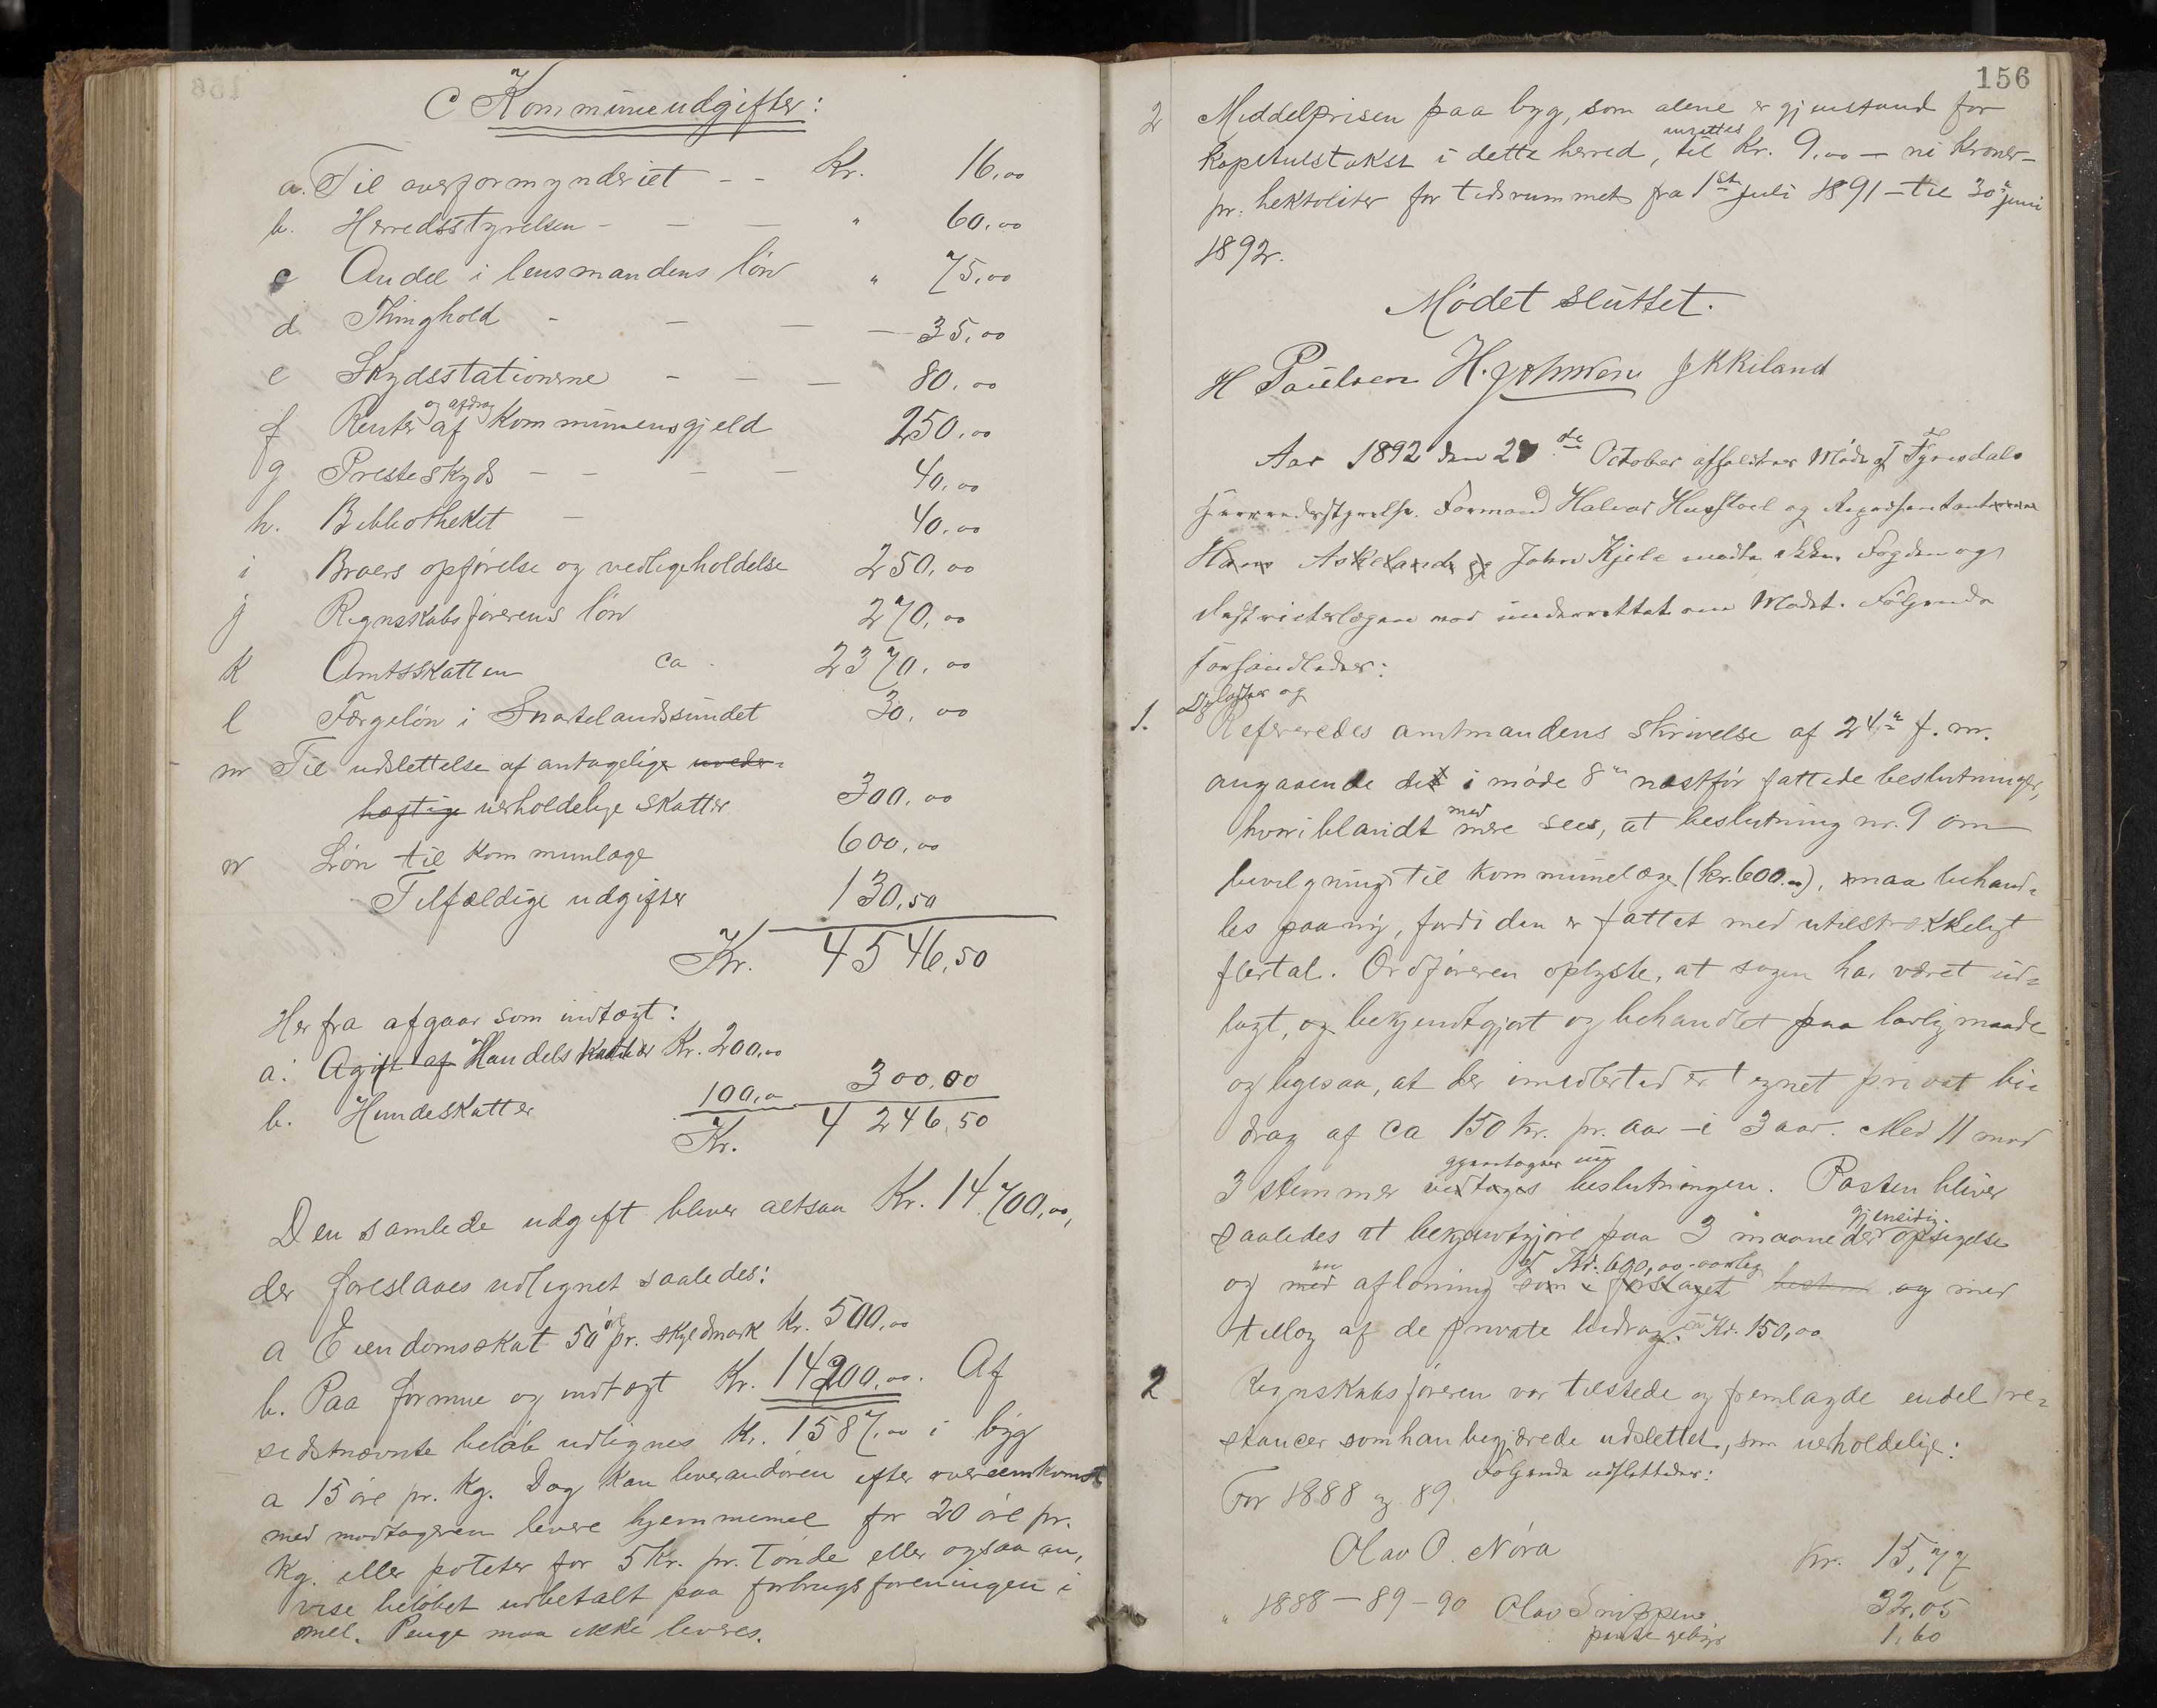 C Kommuneudgifter:
a. Til overformynderiet - - Kr. 16,00
b. Herredsstyrelsen - - - " 60,00
c Andel i lensmandens løn " 75,00
d. Thinghold - - - - 35,00
e Skydsstationerne - - - 80,00
f Renter og afdrag af Kommunens gjeld 250,00
g Presteskyds - - - - 40,00
h. Bibliotheket - 40,00
i Broers opførelse og vedligeholdelse 250,00
j Regnskabsførerens løn 270,00
K Amtsskatten ca. 2370,00
l Færgeløn i Snartelandssundet 30,00
m Til udslettelse af antagelige uveder=
hæftige uerholdelige skatter 300,00
n Løn til Kommunlæge 600,00
Tilfældige udgifter 130,50
Kr. 4546,50
Herfra afgaar som indtægt:
a. Agift af Handels Kr. 200,00
b. Hundeskatter 100,00 300,00
Kr. 4246,50
Den samlede udgift bliver altsaa Kr. 14700,00,
der foreslaaes udlignet saaledes:
a Eiendomsskat 50 øre pr. skyldmark Kr. 500,00
b. Paa formue og indtægt Kr. 14200,00. Af
sidstnævnte beløb udlignes Kr. 1587,00 i byg
a 15 øre pr. Kg. Dog kan leverandøren efter overenskomst
med modtageren levere hjemmemel for 20 øre pr.
Kg. eller poteter for 5 Kr. pr. Tønde eller ogsaa an,
vise beløbet udbetalt paa forbrugsforeningen i
mel. Penge maa ikke leveres.
156
2 Middelprisen paa byg, som alene er gjenstand for
kapitulstakst i dette herred, ansattes til Kr. 9,00 — ni Kroner —
pr. hektoliter for tidsrummet fra 1ste Juli 1891 — til 30te juni
1892.
Mødet sluttet.
H Paulsen H. Johnsen J K Kiland
Aar 1892 den 28de October afholdtes Møde af Fyresdals
Herredsstyrelse. Formand Halvor Husstvel og Repræsentanterne
Hans Askeland og John Kjele mødte ikke. Fogden og
distriktslægen var underrettet om Mødet. Følgende
forhandledes:
1. Oplæstes og
Refereredes amtmandens skrivelse af 24de f. m.
angaaende det i møde 8de næstfør fattede beslutninger,
hvoriblandt med mere sees, at beslutning nr. 9 om
bevilgning til Kommunelæge (kr. 600.00), maa behand=
les paany, fordi den er fattet med utilstrækkeligt
flertal. Ordføreren oplyste, at sagen har været ud=
lagt, og bekjendtgjort og behandlet paa lovlig maade
og ligesaa, at der imidlertid er tegnet privat bi=
drag af ca 150 kr. pr. aar i 3 aar. Med 11 mod
3 stemmer vedtages gjentages beslutningen. Posten bliver
saaledes at bekjendtgjøre paa 3 maaneders gjensidig opsigelse
og med aflønning som i forslaget af Kr. 600,00 aarlig og med
tillæg af de private bidrag: ca Kr. 150,00
2 Regnskabsføreren var tilstede og fremlagde endel re=
stancer som han begjærede udslettet, som uerholdelige:
Følgende udslettedes:
For 1888 og 89
Olav O. Nøra Kr. 15,77
" 1888 — 89 — 90 Olav 32,05
1,60